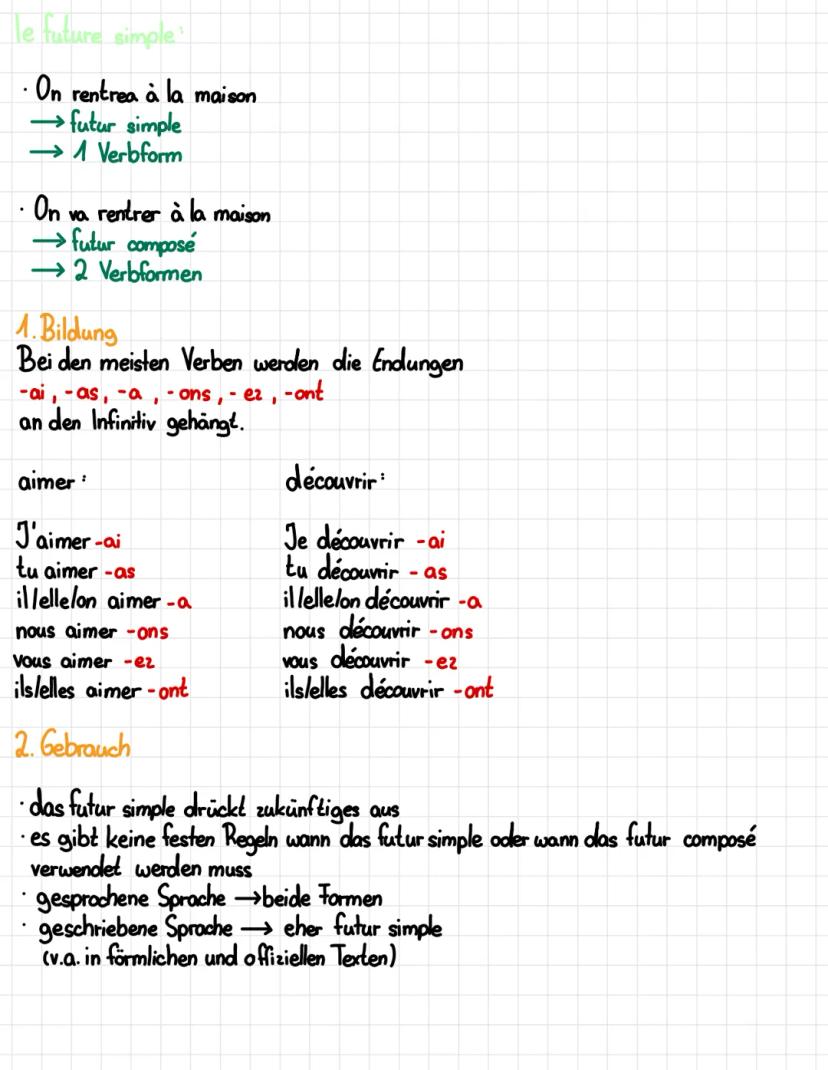 le future simple:
· On rentrea à la maison
→ futur simple
→ 1 Verbform
· On va rentrer à la maison
→ futur composé
→ 2 Verbformen
1. Bildung
Bei den meisten Verben werden die Endungen
-ai, -as, -a, -ons, -ez, -ont
an den Infinitiv gehängt.
aimer:
J'aimer -ai
tu aimer -as
il/elle/on aimer -a
nous aimer -ons
vous aimer -ez
ils/elles aimer -ont
découvrir:
Je découvrir -ai
tu découvrir -as
il/elle/on découvrir -a
nous découvrir -ons
vous découvrir -ez
ils/elles découvrir -ont
2. Gebrauch
· das futur simple drückt zukünftiges aus
· es gibt keine festen Regeln wann das futur simple oder wann das futur composé
verwendet werden muss
· gesprochene Sprache → beide Formen
· geschriebene Sprache → eher futur simple
(v.a. in förmlichen und offiziellen Texten)